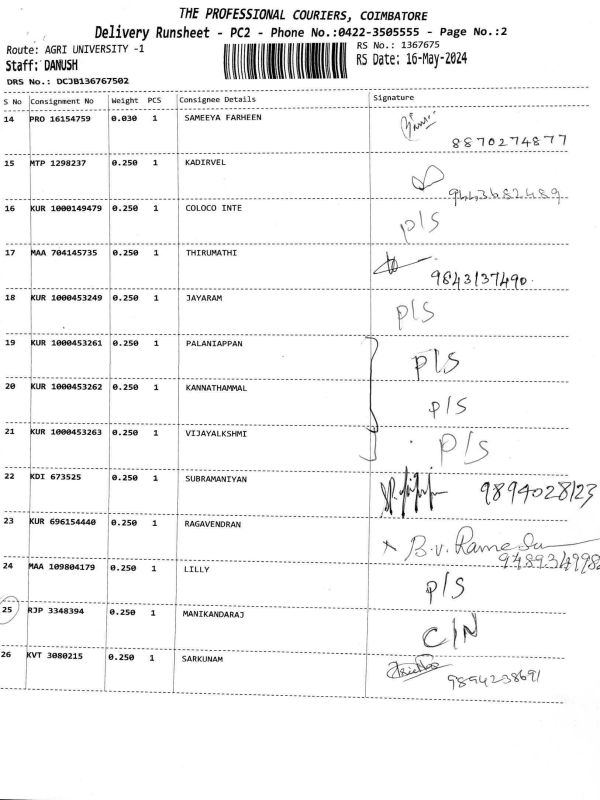 THE PROFESSIONAL COURIERS, COIMBATORE
Delivery Runsheet - PC2 - Phone No.:0422-3505555 - Page No.:2
Route: AGRI UNIVERSITY -1
RS No.: 1367675
Staff: DANUSH
RS Date: 16-May-2024
DRS No.: DCJB136767502
S No Consignment No Weight PCS Consignee Details Signature
14 PRO 16154759 0.030 1 SAMEEYA FARHEEN
8870274877
15 MTP 1298237 0.250 1 KADIRVEL
9443682489
16 KUR 1000149479 0.250 1 COLOCO INTE P/S
17 MAA 704145735 0.250 1 THIRUMATHI
9843137490.
18 KUR 1000453249 0.250 1 JAYARAM P/S
19 KUR 1000453261 0.250 1 PALANIAPPAN P/S
20 KUR 1000453262 0.250 1 KANNATHAMMAL P/S
21 KUR 1000453263 0.250 1 VIJAYALKSHMI P/S
22 KDI 673525 0.250 1 SUBRAMANIYAN 9894028123
23 KUR 696154440 0.250 1 RAGAVENDRAN B.V. Ramesh
24 MAA 109804179 0.250 1 LILLY P/S
25 RJP 3348394 0.250 1 MANIKANDARAJ C/N
26 KVT 3080215 0.250 1 SARKUNAM 9894238691